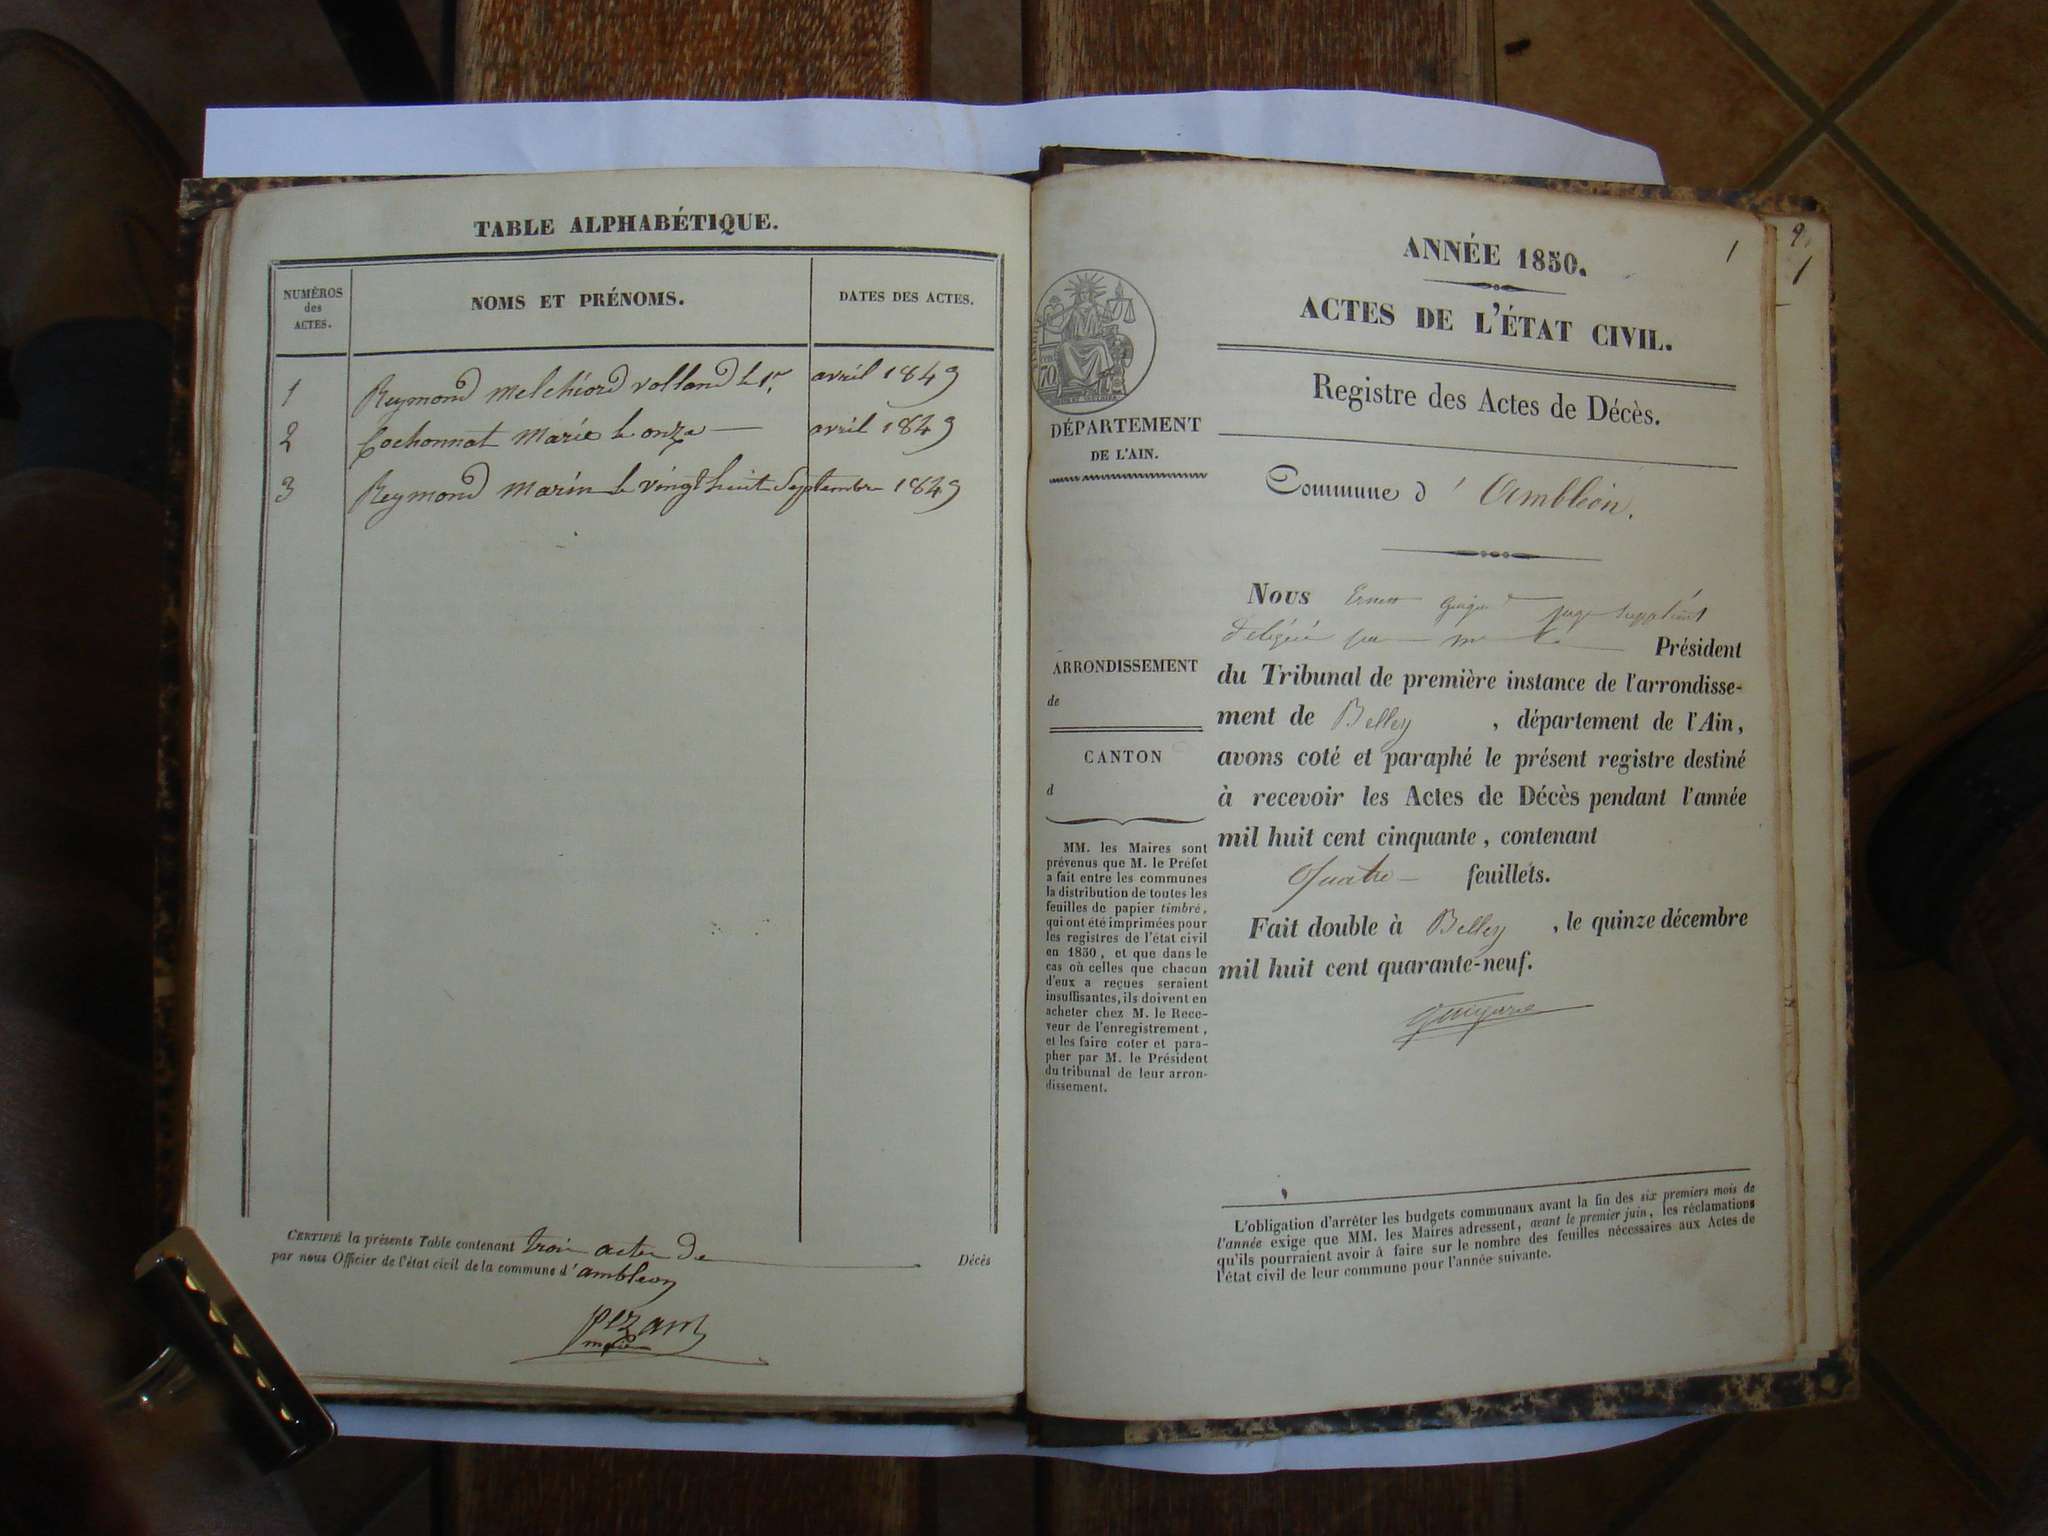 TABLE ALPHABÉTIQUE.
NUMÉROS des ACTES.
NOMS ET PRÉNOMS.
DATES DES ACTES.
1 Reymond melchiord volland le 1er avril 1849
2 Cochonnat Marie le onze — avril 1849
3 Reymond Marin le vingt huit Septembre 1849
CERTIFIÉ la présente Table contenant trois actes De Décès
par nous Officier de l'état civil de la commune d' ambleon
pezant
maire
1
ANNÉE 1850.
ACTES DE L'ÉTAT CIVIL.
Registre des Actes de Décès.
Commune d' Ambléon.
70
DÉPARTEMENT
DE L'AIN.
ARRONDISSEMENT
de
CANTON
d
MM. les Maires sont
prévenus que M. le Préfet
a fait entre les communes
la distribution de toutes les
feuilles de papier timbré,
qui ont été imprimées pour
les registres de l'état civil
en 1850, et que dans le
cas où celles que chacun
d'eux a reçues seraient
insuffisantes, ils doivent en
acheter chez M. le Rece-
veur de l'enregistrement,
et les faire coter et para-
pher par M. le Président
du tribunal de leur arron-
dissement.
Nous Ernest juge suppléant
délégué par Président
du Tribunal de première instance de l'arrondisse-
ment de Belley , département de l'Ain,
avons coté et paraphé le présent registre destiné
à recevoir les Actes de Décès pendant l'année
mil huit cent cinquante, contenant
Quatre — feuillets.
Fait double à Belley , le quinze décembre
mil huit cent quarante-neuf.
L'obligation d'arrêter les budgets communaux avant la fin des six premiers mois de
l'année exige que MM. les Maires adressent, avant le premier juin, les réclamations
qu'ils pourraient avoir à faire sur le nombre des feuilles nécessaires aux Actes de
l'état civil de leur commune pour l'année suivante.
1